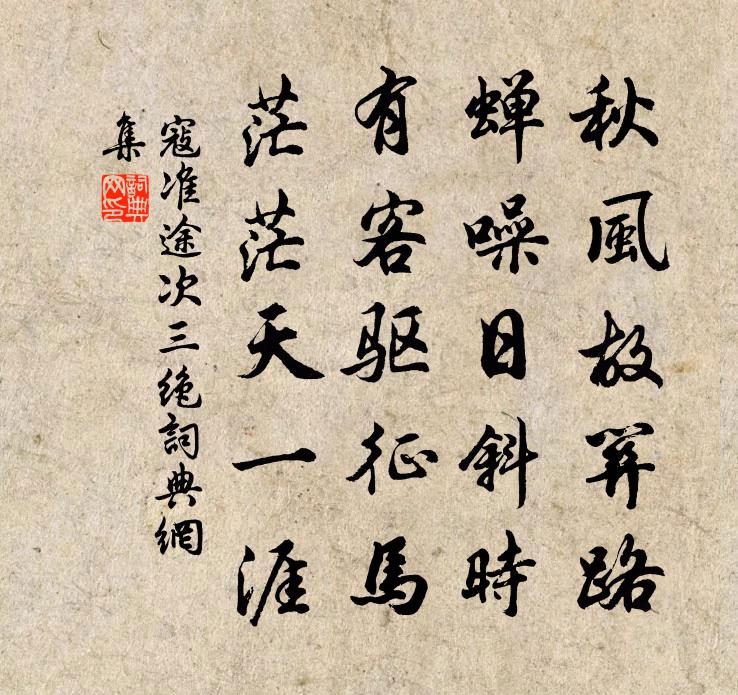 秋風故關路
蝉噪日斜時
有客驱征馬
茫茫天一涯
寇准途次三绝詞典網
集
詞典
网印